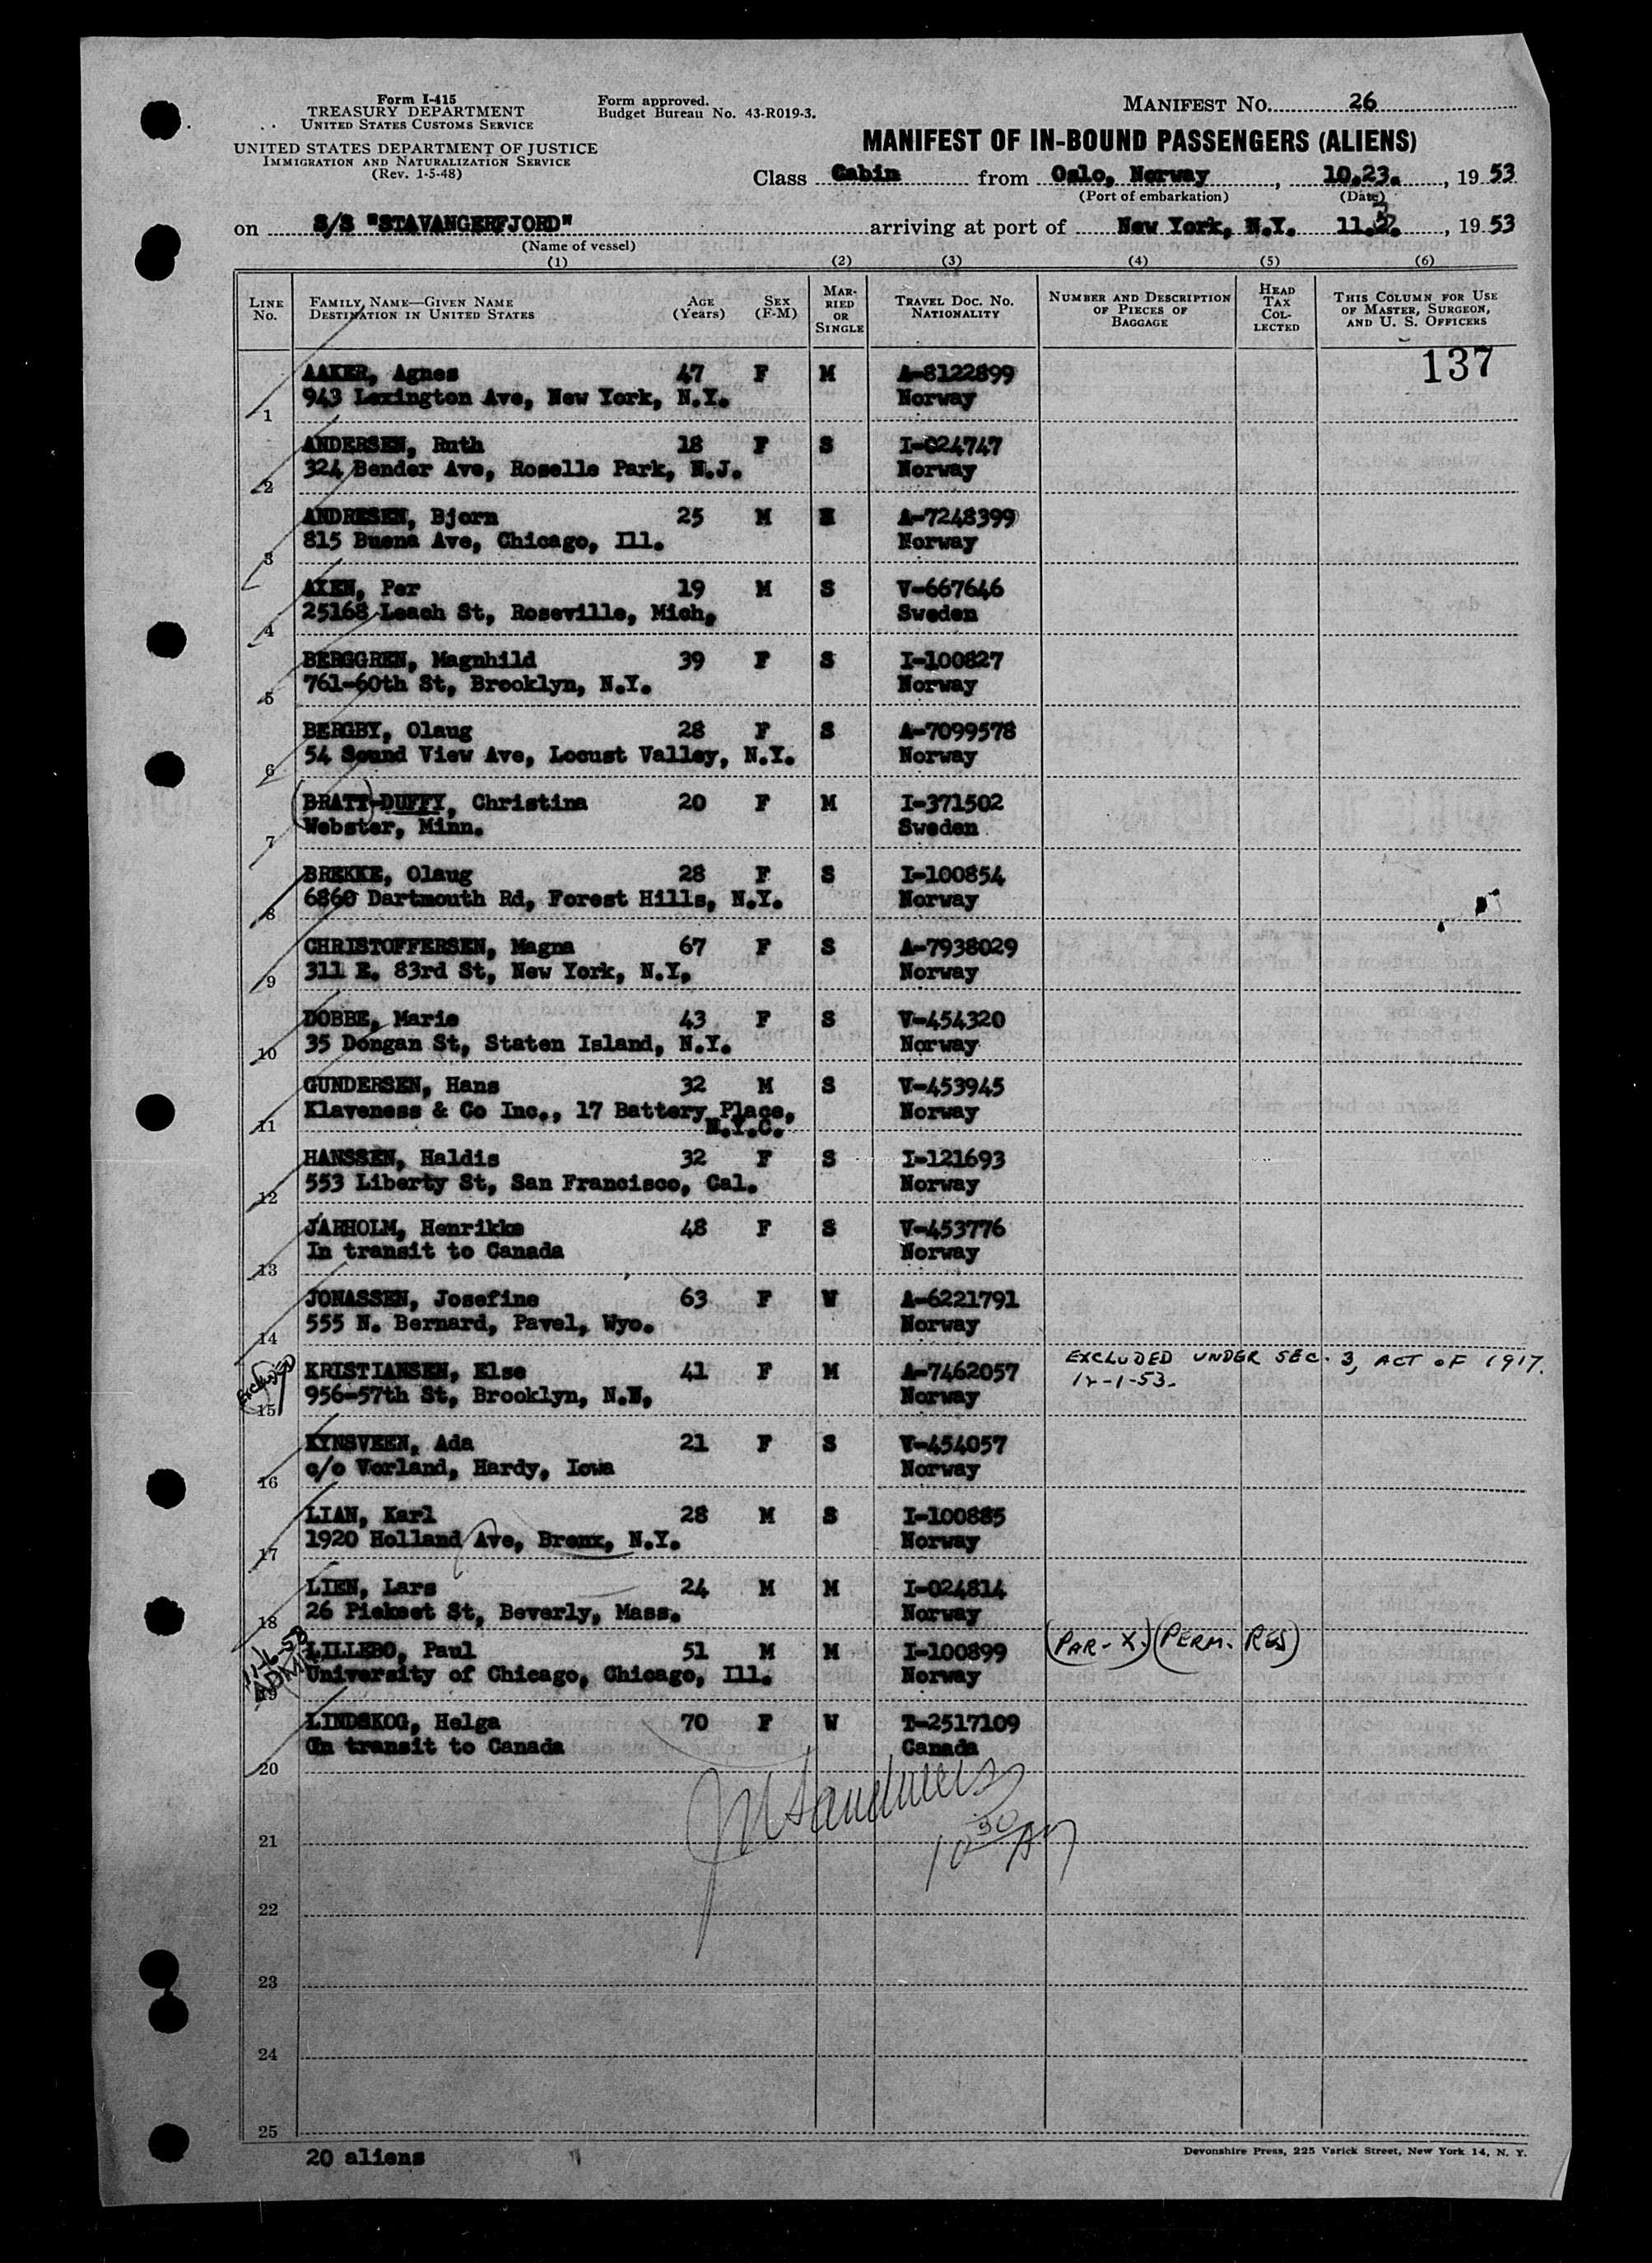 Form I-415
TREASURY DEPARTMENT
UNITED STATES CUSTOMS SERVICE
UNITED STATES DEPARTMENT OF JUSTICE
IMMIGRATION AND NATURALIZATION SERVICE
(Rev. 1-5-48)
Form approved.
Budget Bureau No. 43-R019-3.
MANIFEST NO. 26
MANIFEST OF IN-BOUND PASSENGERS (ALIENS)
Class Cabin from Oslo, Norway, 10.23., 1953
(Port of embarkation) (Date)
on S/S "STAVANGERFJORD" arriving at port of New York, N.Y. 11.3., 1953
(Name of vessel)
(1) (2) (3) (4) (5) (6)
LINE NO. FAMILY NAME—GIVEN NAME DESTINATION IN UNITED STATES AGE (Years) SEX (F-M) MARRIED OR SINGLE TRAVEL DOC. NO. NATIONALITY NUMBER AND DESCRIPTION OF PIECES OF BAGGAGE HEAD TAX COLLECTED THIS COLUMN FOR USE OF MASTER, SURGEON, AND U. S. OFFICERS
137
AAKER, Agnes 47 F M A-8122899
1 943 Lexington Ave, New York, N.Y. Norway
ANDERSEN, Ruth 18 F S I-024747
2 324 Bender Ave, Roselle Park, N.J. Norway
ANDRESEN, Bjorn 25 M A-7248399
3 815 Buena Ave, Chicago, Ill. Norway
AXEN, Per 19 M S V-667646
4 25168 Leach St, Roseville, Mich, Sweden
BERGGREN, Magnhild 39 F S I-100827
5 761-60th St, Brooklyn, N.Y. Norway
BERGBY, Olaug 28 F S A-7099578
6 54 Sound View Ave, Locust Valley, N.Y. Norway
(BRATT)-DUFFY, Christina 20 F M I-371502
7 Webster, Minn. Sweden
BREKKE, Olaug 28 F S I-100854
8 6860 Dartmouth Rd, Forest Hills, N.Y. Norway
CHRISTOFFERSEN, Magna 67 F S A-7938029
9 311 E. 83rd St, New York, N.Y, Norway
DOBBE, Marie 43 F S V-454320
10 35 Dongan St, Staten Island, N.Y. Norway
GUNDERSEN, Hans 32 M S V-453945
11 Klaveness & Co Inc., 17 Battery Place, Norway
N.Y.C.
HANSSEN, Haldis 32 F S I-121693
12 553 Liberty St, San Francisco, Cal. Norway
JARHOLM, Henrikke 48 F S V-453776
13 In transit to Canada Norway
JONASSEN, Josefine 63 F W A-6221791
14 555 N. Bernard, Pavel, Wyo. Norway
Excluded KRISTIANSEN, Else 41 F M A-7462057 EXCLUDED UNDER SEC. 3, ACT OF 1917.
15 956-57th St, Brooklyn, N.N, Norway 12-1-53.
KYNSVEEN, Ada 21 F S V-454057
16 c/o Vorland, Hardy, Iowa Norway
LIAN, Karl 28 M S I-100885
17 1920 Holland Ave, Bronx, N.Y. Norway
LIEN, Lars 24 M M I-024814
18 26 Pickset St, Beverly, Mass. Norway
11-6-53 ADM LILLEBO, Paul 51 M M I-100899 (PAR-X.) (PERM. RES)
19 University of Chicago, Chicago, Ill. Norway
LINDSKOG, Helga 70 F W T-2517109
20 In transit to Canada Canada
10 30 AM
21
22
23
24
25
20 aliens
Devonshire Press, 225 Varick Street, New York 14, N. Y.